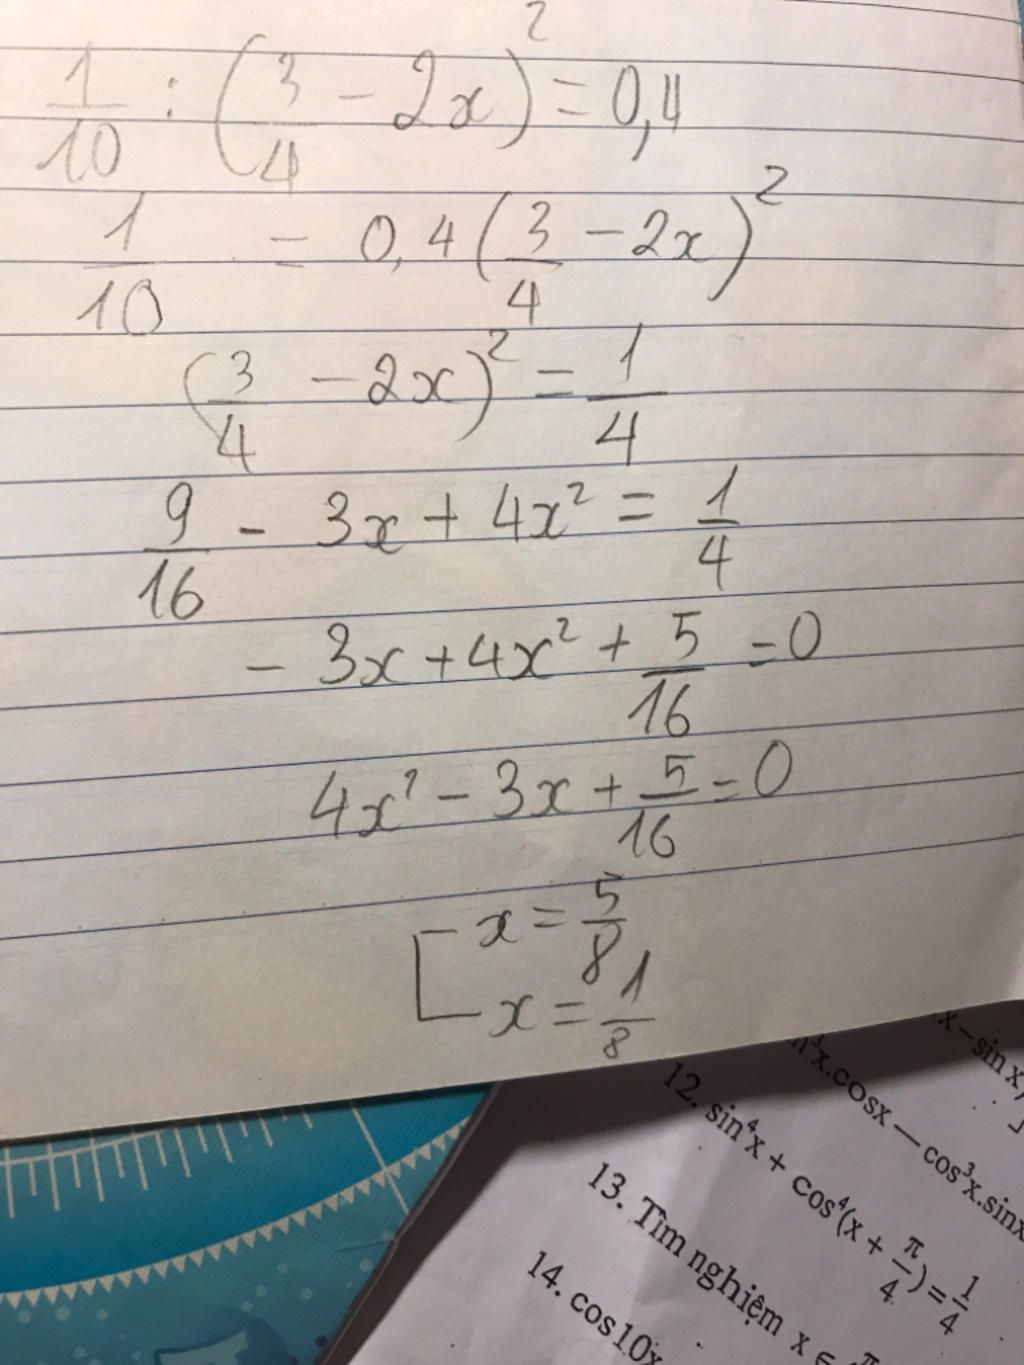 1/10 : (3/4 - 2x)² = 0,4
1/10 = 0,4(3/4 - 2x)²
(3/4 - 2x)² = 1/4
9/16 - 3x + 4x² = 1/4
- 3x + 4x² + 5/16 = 0
4x² - 3x + 5/16 = 0
x = 5/8
x = 1/8
x - sin x)
³x.cosx – cos³x.sinx
12. sin⁴x + cos⁴(x + π/4) = 1/4
13. Tìm nghiệm x ∈
14. cos10x